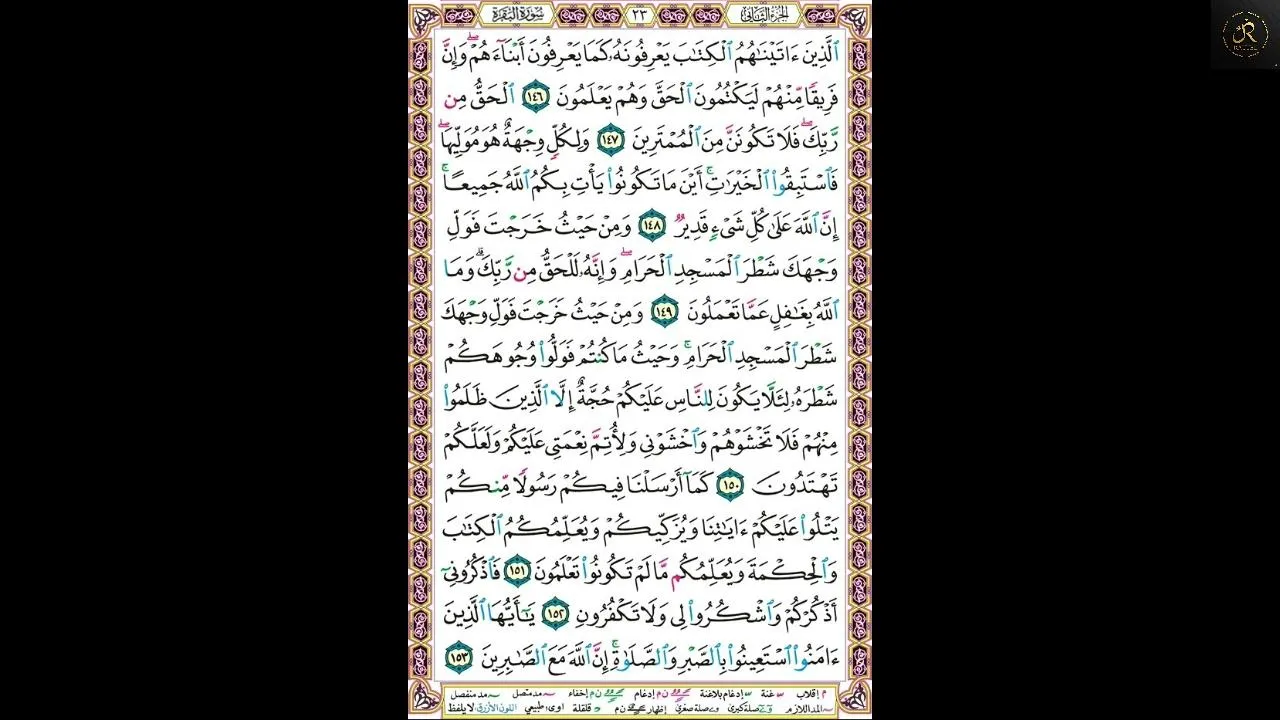 الجزء الثاني ٢٣ سورة البقرة
ٱلَّذِينَ ءَاتَيْنَٰهُمُ ٱلْكِتَٰبَ يَعْرِفُونَهُۥ كَمَا يَعْرِفُونَ أَبْنَآءَهُمْ ۖ وَإِنَّ
فَرِيقًا مِّنْهُمْ لَيَكْتُمُونَ ٱلْحَقَّ وَهُمْ يَعْلَمُونَ ١٤٦ ٱلْحَقُّ مِن
رَّبِّكَ ۖ فَلَا تَكُونَنَّ مِنَ ٱلْمُمْتَرِينَ ١٤٧ وَلِكُلٍّ وِجْهَةٌ هُوَ مُوَلِّيهَا ۖ
فَٱسْتَبِقُوا۟ ٱلْخَيْرَٰتِ ۚ أَيْنَ مَا تَكُونُوا۟ يَأْتِ بِكُمُ ٱللَّهُ جَمِيعًا ۚ
إِنَّ ٱللَّهَ عَلَىٰ كُلِّ شَىْءٍ قَدِيرٌ ١٤٨ وَمِنْ حَيْثُ خَرَجْتَ فَوَلِّ
وَجْهَكَ شَطْرَ ٱلْمَسْجِدِ ٱلْحَرَامِ ۖ وَإِنَّهُۥ لَلْحَقُّ مِن رَّبِّكَ ۗ وَمَا
ٱللَّهُ بِغَٰفِلٍ عَمَّا تَعْمَلُونَ ١٤٩ وَمِنْ حَيْثُ خَرَجْتَ فَوَلِّ وَجْهَكَ
شَطْرَ ٱلْمَسْجِدِ ٱلْحَرَامِ ۚ وَحَيْثُ مَا كُنتُمْ فَوَلُّوا۟ وُجُوهَكُمْ
شَطْرَهُۥ لِئَلَّا يَكُونَ لِلنَّاسِ عَلَيْكُمْ حُجَّةٌ إِلَّا ٱلَّذِينَ ظَلَمُوا۟
مِنْهُمْ فَلَا تَخْشَوْهُمْ وَٱخْشَوْنِى وَلِأُتِمَّ نِعْمَتِى عَلَيْكُمْ وَلَعَلَّكُمْ
تَهْتَدُونَ ١٥٠ كَمَآ أَرْسَلْنَا فِيكُمْ رَسُولًا مِّنكُمْ
يَتْلُوا۟ عَلَيْكُمْ ءَايَٰتِنَا وَيُزَكِّيكُمْ وَيُعَلِّمُكُمُ ٱلْكِتَٰبَ
وَٱلْحِكْمَةَ وَيُعَلِّمُكُم مَّا لَمْ تَكُونُوا۟ تَعْلَمُونَ ١٥١ فَٱذْكُرُونِىٓ
أَذْكُرْكُمْ وَٱشْكُرُوا۟ لِى وَلَا تَكْفُرُونِ ١٥٢ يَٰٓأَيُّهَا ٱلَّذِينَ
ءَامَنُوا۟ ٱسْتَعِينُوا۟ بِٱلصَّبْرِ وَٱلصَّلَوٰةِ ۚ إِنَّ ٱللَّهَ مَعَ ٱلصَّٰبِرِينَ ١٥٣
م إقلاب غنة إدغام بلاغنة ن م إدغام ن م إخفاء مد متصل مد منفصل
المد اللازم صلة كبرى صلة صغرى إظهار ن م قلقلة طبيعي اللون الأزرق لا يلفظ